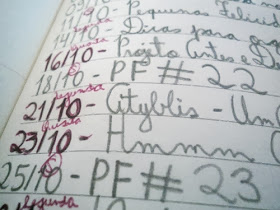 11/10 - Pequenas Felicid
14/10 - Dicas para
quarta
16/10 - Projeto Cortes e De
18/10 - PF # 22
segunda
21/10 - Cityblis - Um
quarta
23/10 - Hmmm (
25/10 - PF # 23
segunda